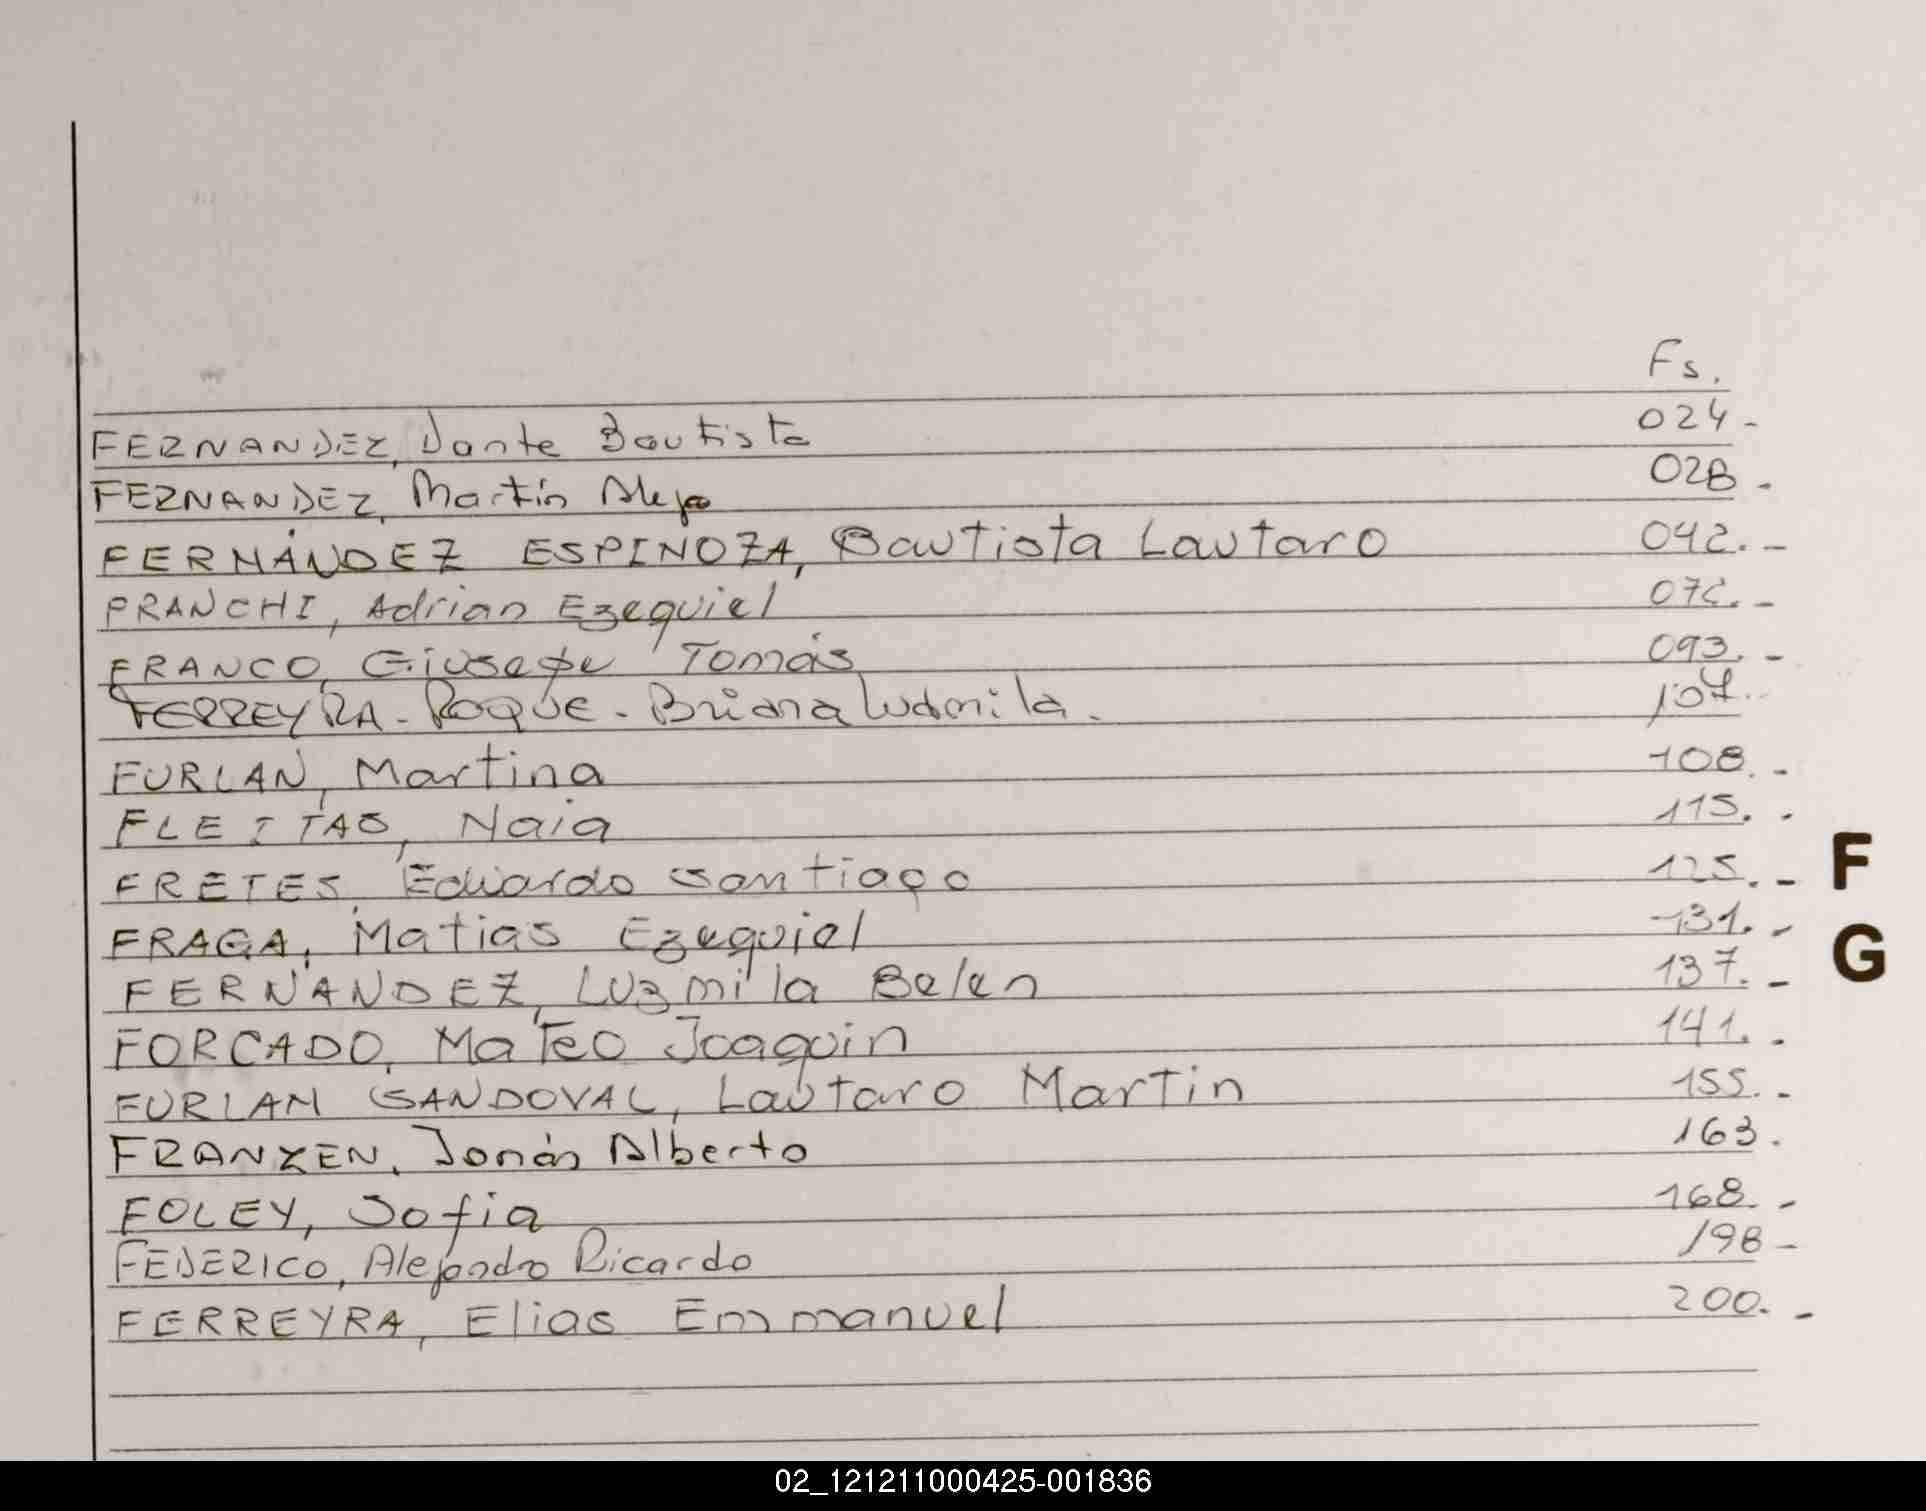 Fs.
FERNANDEZ, Dante Bautista 024-
FERNANDEZ, Martín Alejo 028-
FERNÁNDEZ ESPINOZA, Bautista Lautaro 042.-
FRANCHI, Adrian Ezequiel
FRANCO, Giusepe Tomás 093.-
FERREYRA-Roque-Briana Ludmila. 107.
FURLAN, Martina 108.-
FLEITAS, Naia 115.-
FRETES, Eduardo Santiago 125.- F
FRAGA, Matias Ezequiel 131.-
G
FERNANDEZ, Luzmila Belen 137.-
FORCADO, Mateo Joaquin 141.-
FURLAN SANDOVAL, Lautaro Martin 155.-
FRANZEN, Jonás Alberto 163.
FOLEY, Sofia 168.-
FEDERICO, Alejandro Ricardo 198-
FERREYRA, Elias Emmanuel 200.-
02_121211000425-001836